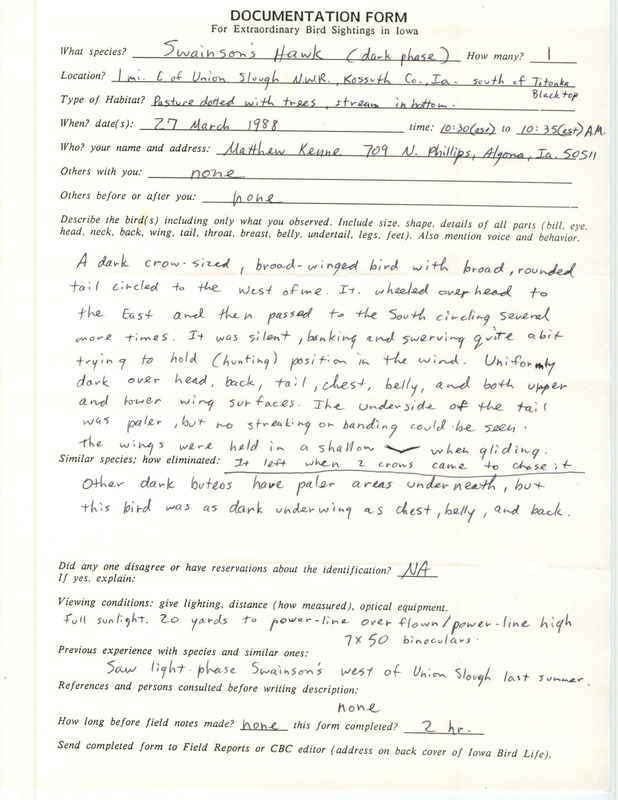 DOCUMENTATION FORM
For Extraordinary Bird Sightings in Iowa
What species? Swainson's Hawk (dark phase) How many? 1
Location? 1 mi. E of Union Slough N.W.R., Kossuth Co., Ia. south of Titonka
Blacktop
Type of Habitat? Pasture dotted with trees, stream in bottom.
When? date(s): 27 March 1988 time: 10:30(est) to 10:35(est) A.M.
Who? your name and address: Matthew Kenne 709 N. Phillips, Algona, Ia. 50511
Others with you: none
Others before or after you: none
Describe the bird(s) including only what you observed. Include size, shape, details of all parts (bill, eye,
head, neck, back, wing, tail, throat, breast, belly, undertail, legs, feet). Also mention voice and behavior.
A dark crow-sized, broad-winged bird with broad, rounded
tail circled to the west of me. It wheeled overhead to
the East and then passed to the South circling several
more times. It was silent, banking and swerving quite a bit
trying to hold (hunting) position in the wind. Uniformly
dark over head, back, tail, chest, belly, and both upper
and lower wing surfaces. The underside of the tail
was paler, but no streaking or banding could be seen.
The wings were held in a shallow when gliding.
Similar species; how eliminated: It left when 2 crows came to chase it
Other dark buteos have paler areas underneath, but
this bird was as dark underwing as chest, belly, and back.
Did any one disagree or have reservations about the identification? NA
If yes, explain:
Viewing conditions: give lighting, distance (how measured), optical equipment.
Full sunlight. 20 yards to power-line over flown/power-line high
7x50 binoculars.
Previous experience with species and similar ones:
Saw light-phase Swainson's west of Union Slough last summer.
References and persons consulted before writing description:
none
How long before field notes made? none this form completed? 2 hr.
Send completed form to Field Reports or CBC editor (address on back cover of Iowa Bird Life).